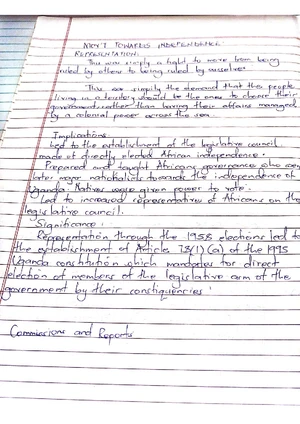 MOVE TOWARDS INDEPENDENCE
REPRESENTATION:
This was simply a fight to move from being
ruled by others to being ruled by ourselves
This was simply the demand that the people
living in a territory should be the ones to choose their
government rather than having their affairs managed
by a colonial power across the sea.
Implications
Led to the establishment of the legislative council
made of directly elected African independence.
Prepared and taught Africans governance who were
later major nationalists towards the independence of
Uganda. Natives were given power to vote.
Led to increased representatives of Africans on the
legislative council.
Significance:
Representation through the 1958 elections led to
the establishment of Article 78(1)(a) of the 1995
Uganda constitution which mandates for direct
election of members of the legislative arm of the
government by their constiquencies.
Commissions and Reports